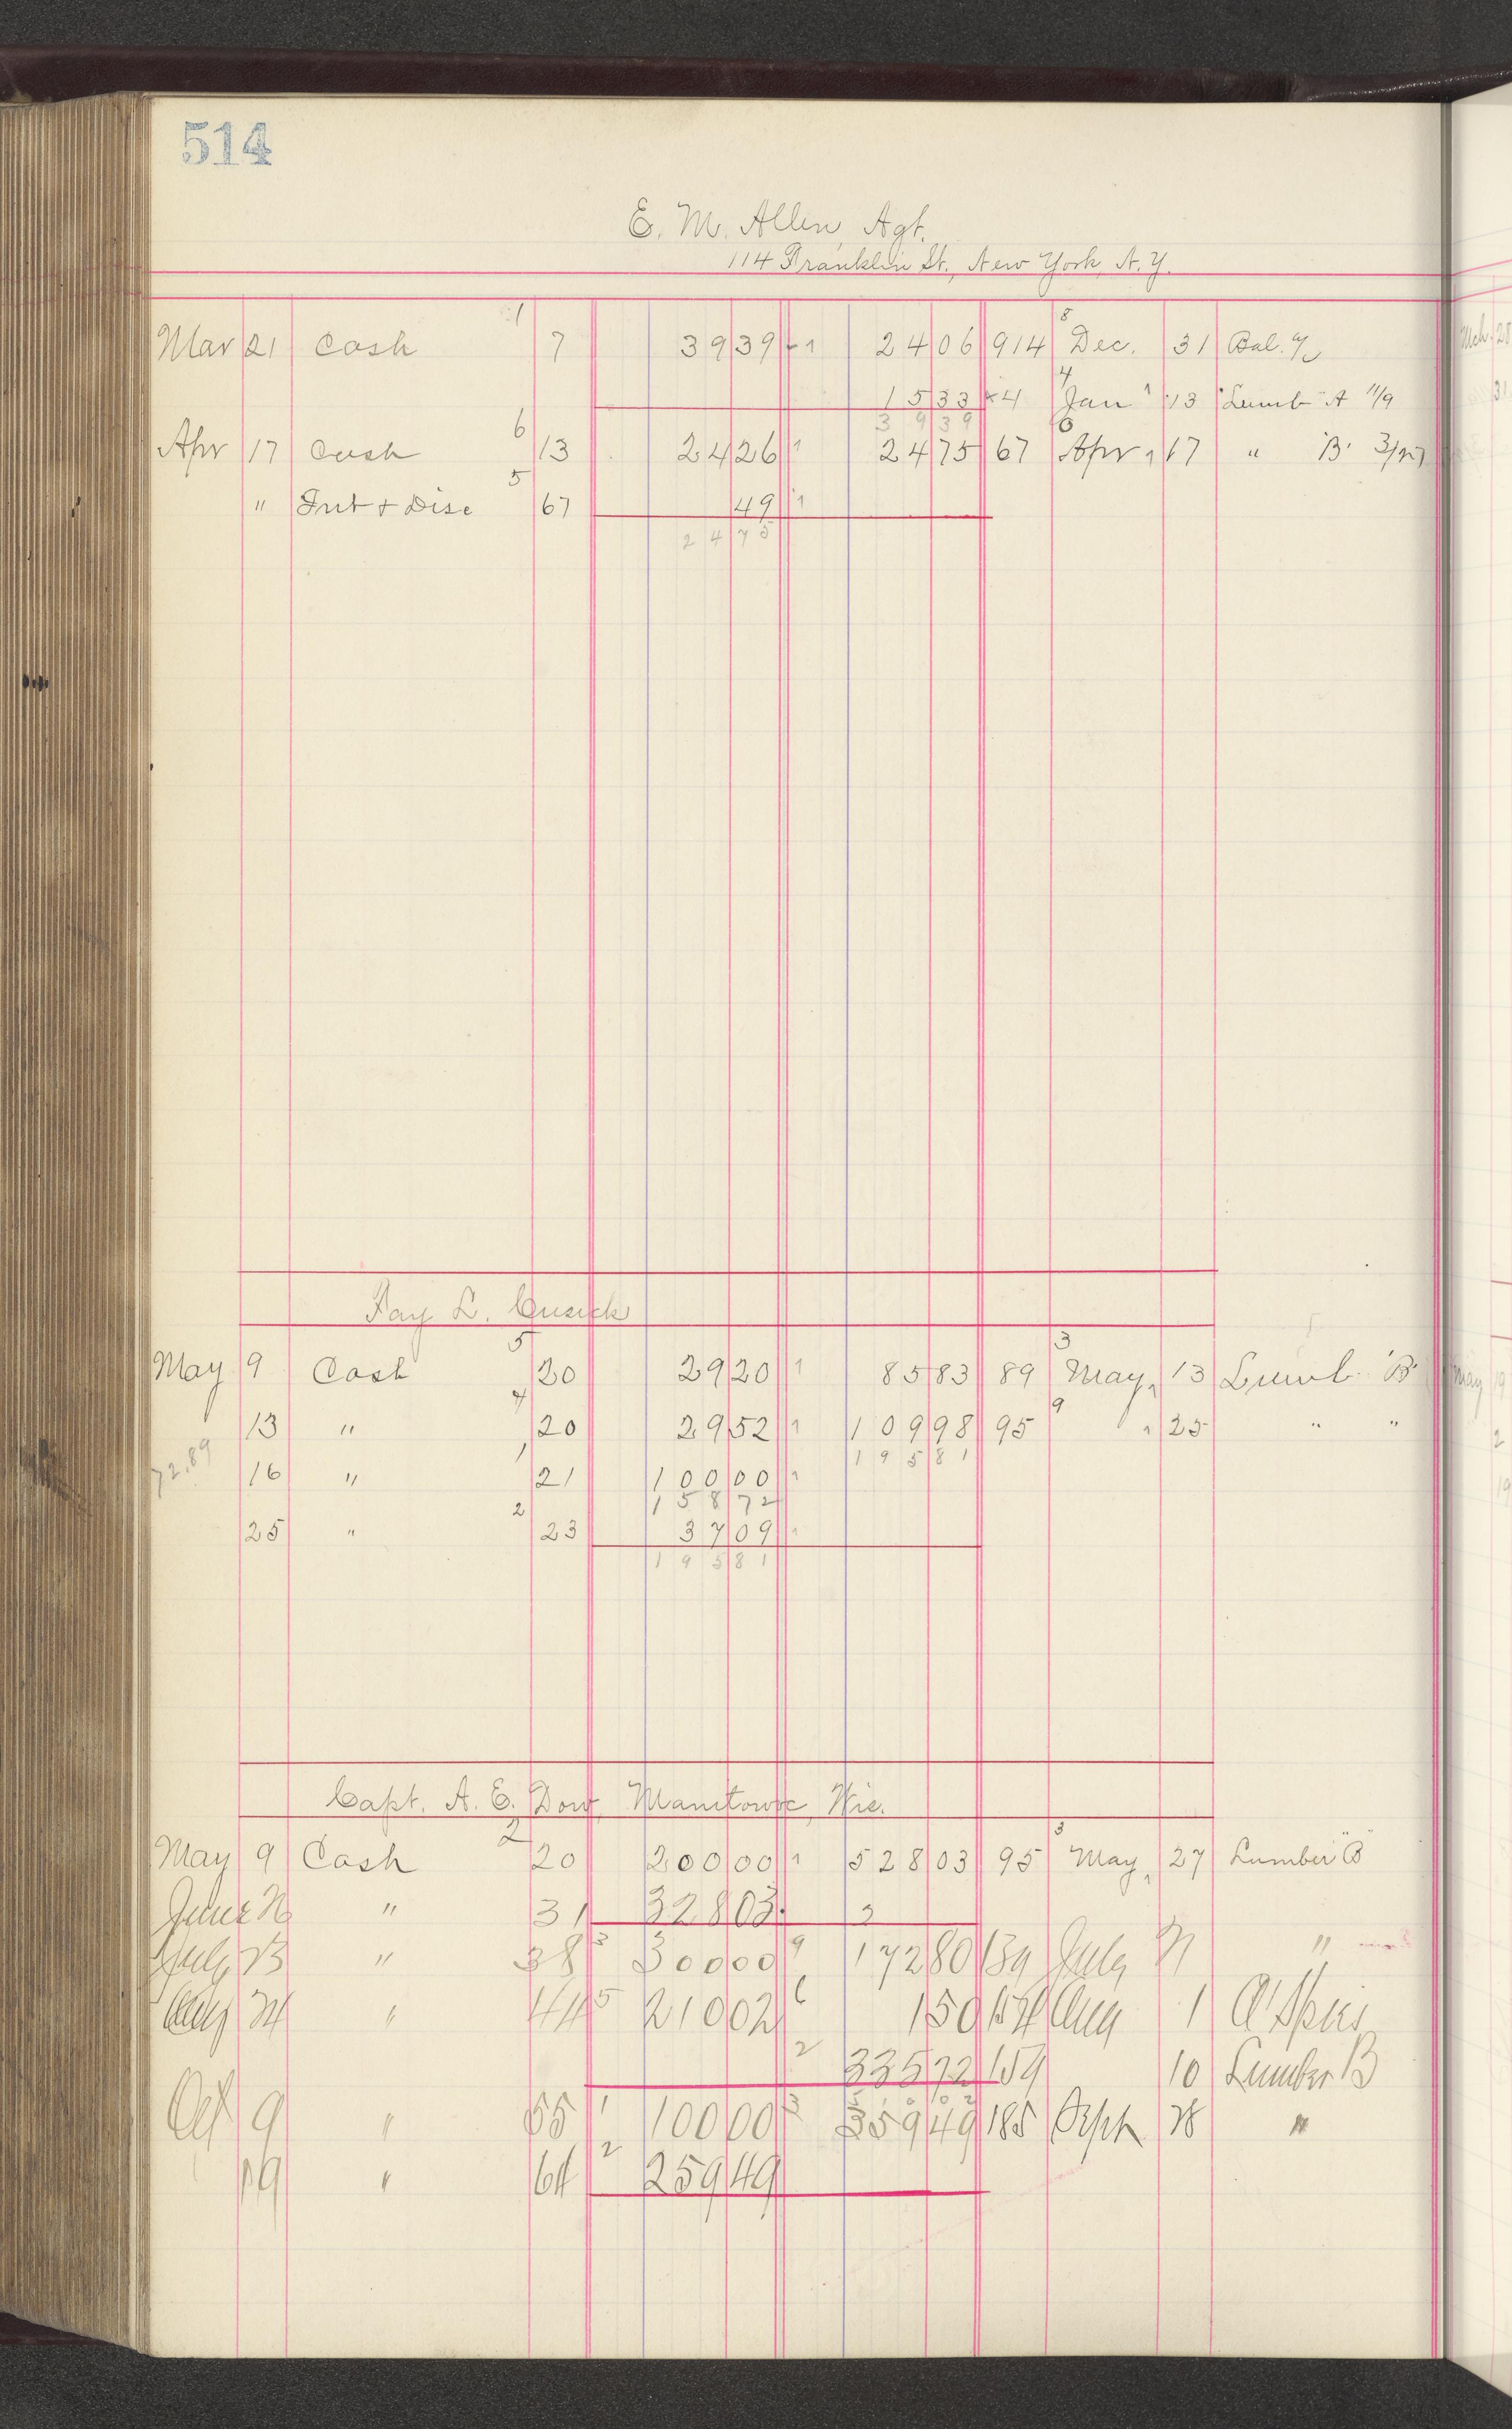 514
E. M. Allen, Agt.
114 Franklin St., New York, N.Y.
Mar 21 Cash 1 7 39 39 1 24 06 914 8 Dec. 31 Bal.
15 33 4 4 Jan 1 13 Lumb A 11/9
39 39
Apr 17 Cash 6 13 24 26 1 24 75 67 6 Apr 1 17 " B 3/27
" Int & Disc 5 67 49 1
24 75
Fay L. Cusick
May 9 Cash 5 20 29 20 1 85 83 89 3 May 1 13 Lumb. "B"
13 " 4 20 29 52 1 109 98 95 9 1 25 " "
195 81
72.89 16 " 1 21 100 00 1
158 72
25 " 2 23 37 09 1
195 81
Capt. A. E. Dow, Manitowoc, Wis.
May 9 Cash 2 20 200 00 1 528 03 95 3 May 1 27 Lumber "B"
June " 31 328 03 2
July " 38 3 300 00 9 172 80 139 July "
Aug " 44 5 210 02 6 1 50 154 Aug 1 A' Spies
2 335 72 159 10 Lumber B
Oct 9 " 55 1 100 00 3 359 49 185 Sept 28 "
19 " 64 2 259 49